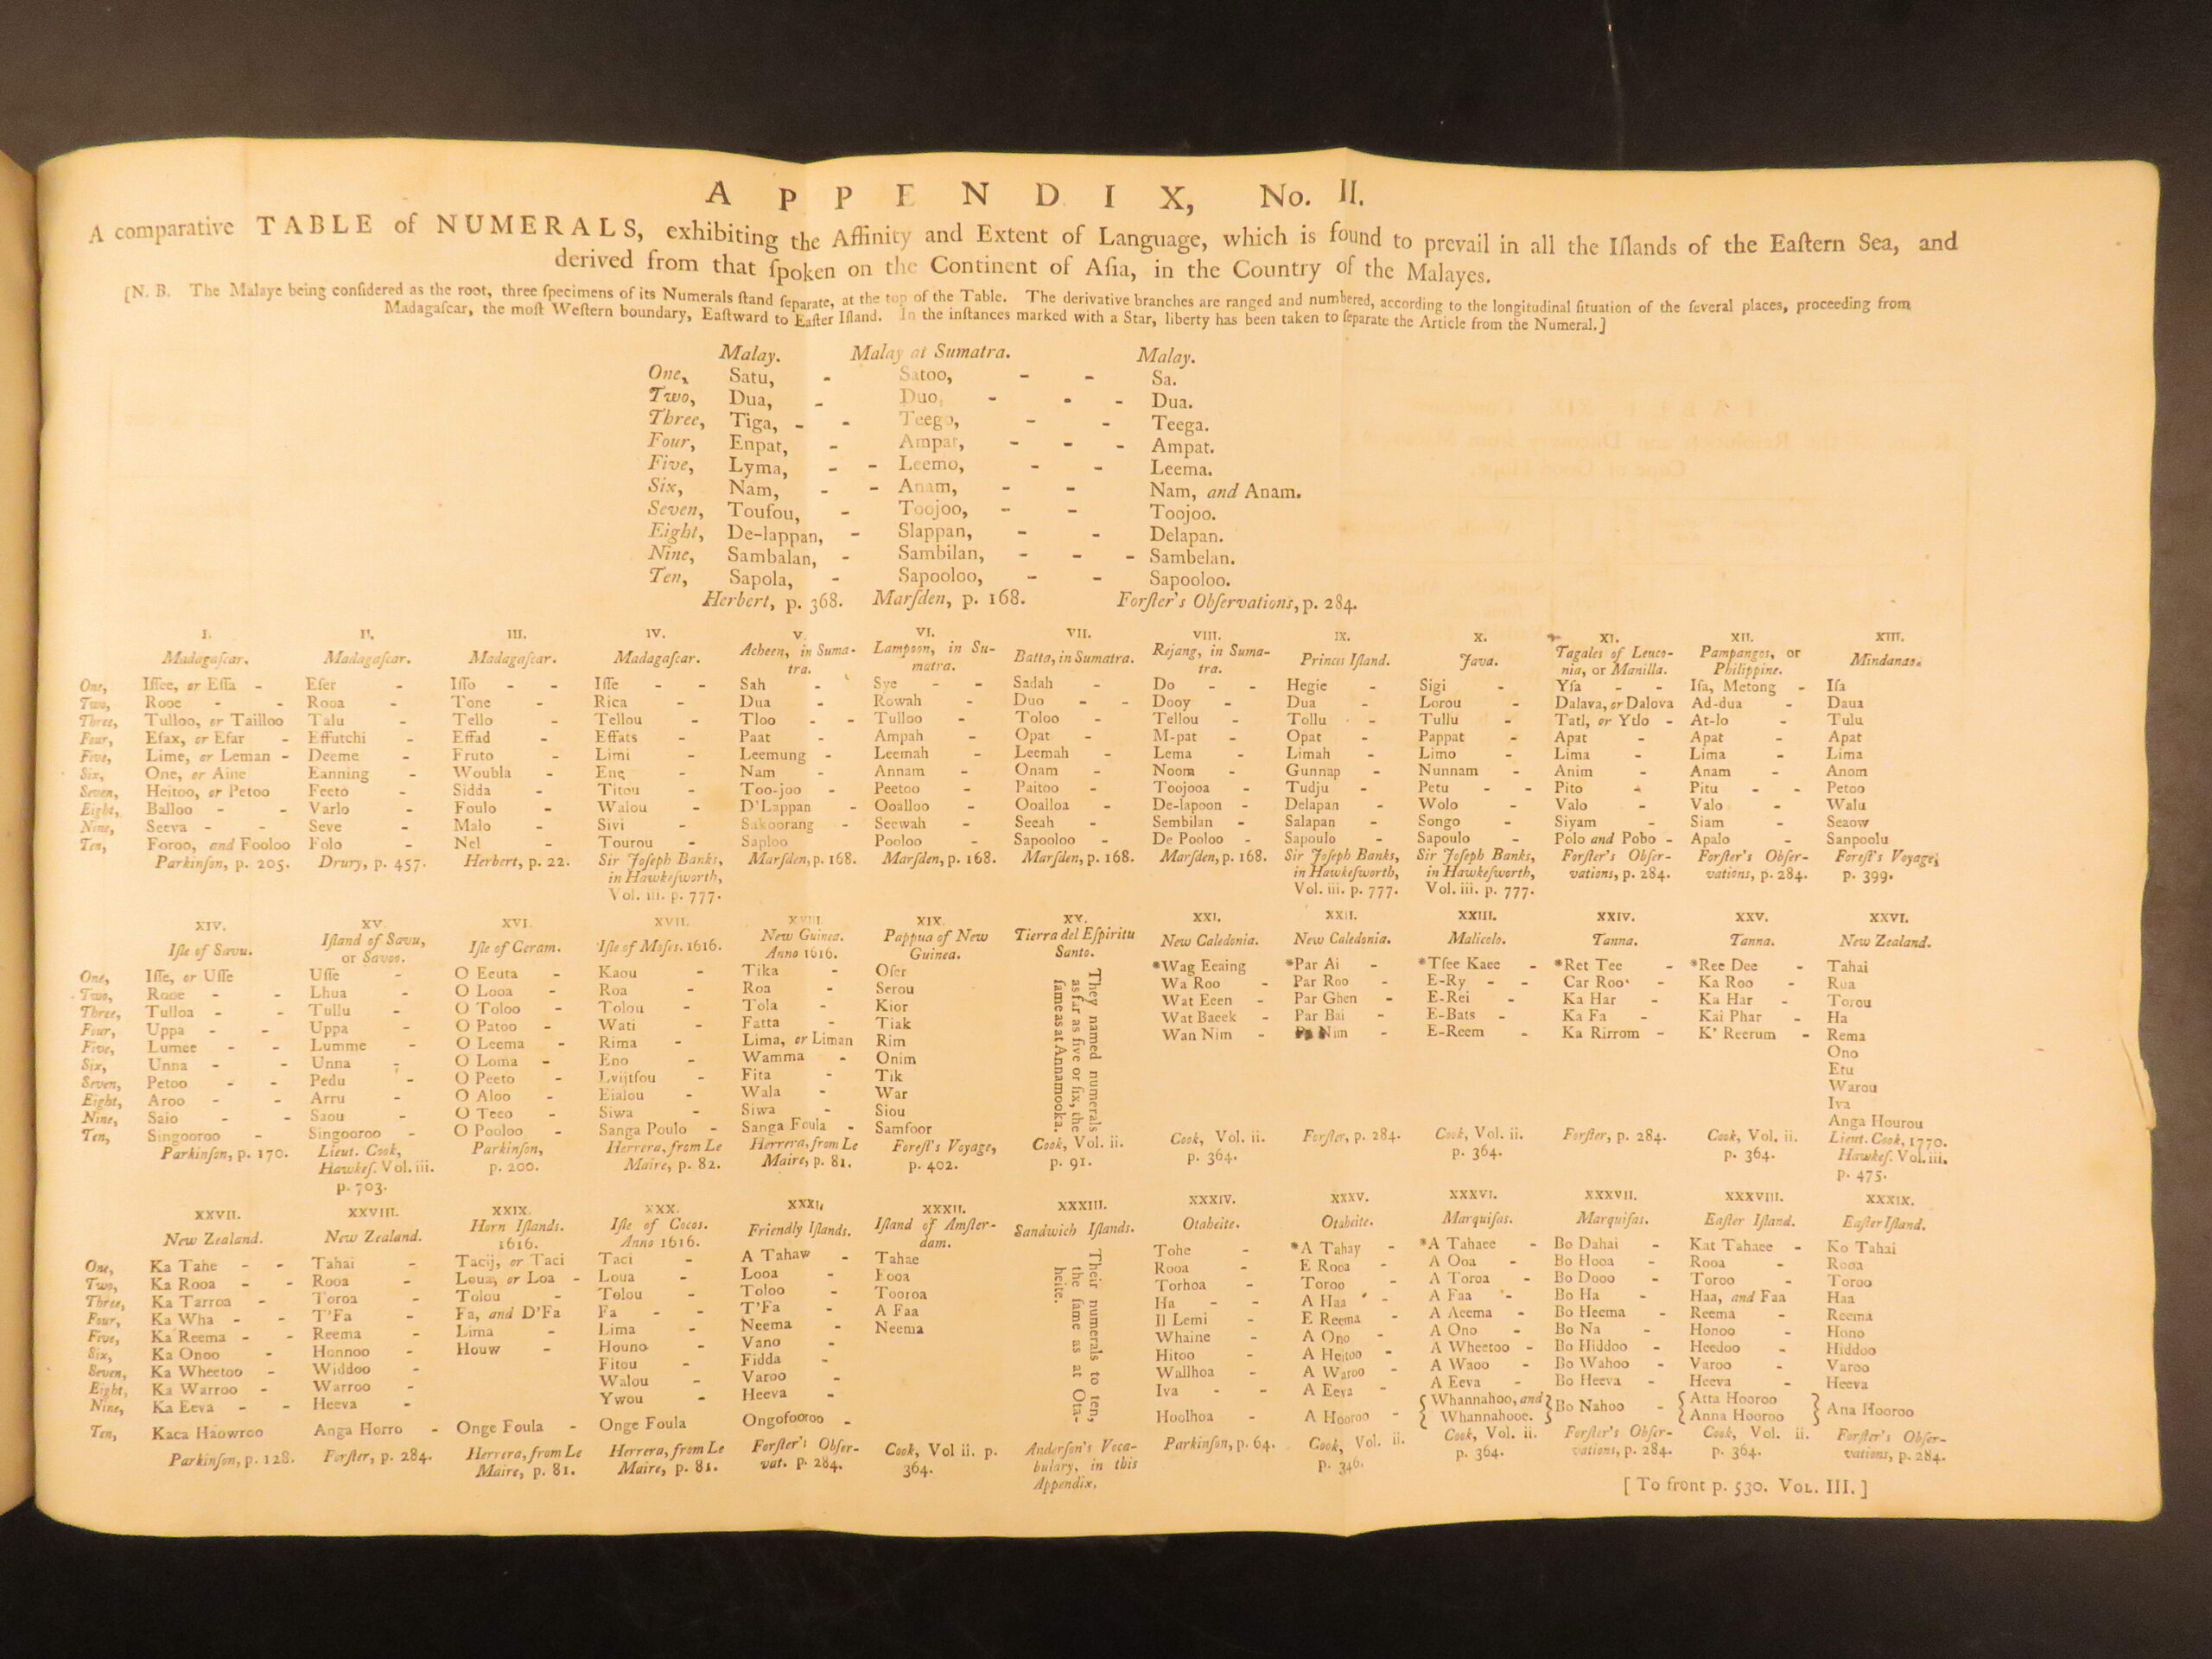 APPENDIX, No. II.
A comparative TABLE of NUMERALS, exhibiting the Affinity and Extent of Language, which is found to prevail in all the Iſlands of the Eaſtern Sea, and
derived from that ſpoken on the Continent of Aſia, in the Country of the Malayes.
[N. B. The Malaye being conſidered as the root, three ſpecimens of its Numerals ſtand ſeparate, at the top of the Table. The derivative branches are ranged and numbered, according to the longitudinal ſituation of the ſeveral places, proceeding from
Madagaſcar, the moſt Weſtern boundary, Eaſtward to Eaſter Iſland. In the inſtances marked with a Star, liberty has been taken to ſeparate the Article from the Numeral.]
Malay. Malay at Sumatra. Malay.
One, Satu, - Satoo, - - Sa.
Two, Dua, - Duo, - - - Dua.
Three, Tiga, - - Teego, - - Teega.
Four, Enpat, - Ampat, - - - Ampat.
Five, Lyma, - - Leemo, - - Leema.
Six, Nam, - - Anam, - - Nam, and Anam.
Seven, Touſou, - Toojoo, - - Toojoo.
Eight, De-lappan, - Slappan, - - Delapan.
Nine, Sambalan, - Sambilan, - - - Sambelan.
Ten, Sapola, - Sapooloo, - - Sapooloo.
Herbert, p. 368. Marſden, p. 168. Forſter's Obſervations, p. 284.
I. II. III. IV. V. VI. VII. VIII. IX. X. XI. XII. XIII.
Madagaſcar. Madagaſcar. Madagaſcar. Madagaſcar. Acheen, in Suma- Lampoon, in Su- Batta, in Sumatra. Rejang, in Suma- Princes Iſland. Java. Tagales of Leuco- Pampangos, or Mindanao.
tra. matra. tra. nia, or Manilla. Philippine.
One, Iſſee, or Eſſa - Eſer - Iſſo - - Iſſe - - Sah - Sye - - Sadah - Do - - Hegie - Sigi - Yſa - - Iſa, Metong - Iſa
Two, Rooe - - Rooa - Tone - Rica - Dua - Rowah - Duo - - Dooy - Dua - Lorou - Dalava, or Dalova Ad-dua - Daua
Three, Tulloo, or Tailloo Talu - Tello - Tellou - Tloo - - Tulloo - Toloo - Tellou - Tollu - Tullu - Tatl, or Ytlo - At-lo - Tulu
Four, Efax, or Efar - Effutchi - Effad - Effats - Paat - Ampah - Opat - M-pat - Opat - Pappat - Apat - Apat - Apat
Five, Lime, or Leman - Deeme - Fruto - Limi - Leemung - Leemah - Leemah - Lema - Limah - Limo - Lima - Lima - Lima
Six, One, or Aine Eanning - Woubla - Ene - Nam - Annam - Onam - Noom - Gunnap - Nunnam - Anim - Anam - Anom
Seven, Heitoo, or Petoo Feeto - Sidda - Titou - Too-joo - Peetoo - Paitoo - Toojooa - Tudju - Petu - - Pito - Pitu - - Petoo
Eight, Balloo - - Varlo - Foulo - Walou - D'Lappan - Ooalloo - Ooalloa - De-lapoon - Delapan - Wolo - Valo - Valo - Walu
Nine, Seeva - - Seve - Malo - Sivi - Sakoorang - Seewah - Seeah - Sembilan - Salapan - Songo - Siyam - Siam - Seaow
Ten, Foroo, and Fooloo Folo - Nel - Tourou - Saploo - Pooloo - Sapooloo - De Pooloo - Sapoulo - Sapoulo - Polo and Pobo - Apalo - Sanpoolu
Parkinſon, p. 205. Drury, p. 457. Herbert, p. 22. Sir Joſeph Banks, Marſden, p. 168. Marſden, p. 168. Marſden, p. 168. Marſden, p. 168. Sir Joſeph Banks, Sir Joſeph Banks, Forſter's Obſer- Forſter's Obſer- Foreſt's Voyage,
in Hawkeſworth, in Hawkeſworth, in Hawkeſworth, vations, p. 284. vations, p. 284. p. 399.
Vol. iii. p. 777. Vol. iii. p. 777. Vol. iii. p. 777.
XIV. XV. XVI. XVII. XVIII. XIX. XX. XXI. XXII. XXIII. XXIV. XXV. XXVI.
Iſle of Savu. Iſland of Savu, Iſle of Ceram. Iſle of Moſes. 1616. New Guinea. Pappua of New Tierra del Eſpiritu New Caledonia. New Caledonia. Malicolo. Tanna. Tanna. New Zealand.
or Savoo. Anno 1616. Guinea. Santo.
One, Iſſe, or Uſſe Uſſe - O Eeuta - Kaou - Tika - Oſer *Wag Eeaing *Par Ai - *Tſee Kaee - *Ret Tee - *Ree Dee - Tahai
Two, Rooe - - Lhua - O Looa - Roa - Roa - Serou Wa Roo - Par Roo - E-Ry - - Car Roo - Ka Roo - Rua
Three, Tulloa - - Tullu - O Toloo - Tolou - Tola - Kior Wat Eeen - Par Ghen - E-Rei - Ka Har - Ka Har - Torou
Four, Uppa - - Uppa - O Patoo - Wati - Fatta - Tiak Wat Baeek - Par Bai - E-Bats - Ka Fa - Kai Phar - Ha
Five, Lumee - - Lumme - O Leema - Rima - Lima, or Liman Rim Wan Nim - Nim - E-Reem - Ka Rirrom - K' Reerum - Rema
Six, Unna - - Unna - O Loma - Eno - Wamma - Onim Ono
Seven, Petoo - - Pedu - O Peeto - Lvijtſou - Fita - Tik Etu
Eight, Aroo - - Arru - O Aloo - Eialou - Wala - War Warou
Nine, Saio - - Saou - O Teeo - Siwa - Siwa - Siou Iva
Ten, Singooroo - Singooroo - O Pooloo - Sanga Poulo - Sanga Foula - Samfoor Anga Hourou
They named numerals
as far as five or ſix, the
ſame as at Annamooka.
Parkinſon, p. 170. Lieut. Cook, Parkinſon, Herrera, from Le Herrera, from Le Foreſt's Voyage, Cook, Vol. ii. Cook, Vol. ii. Forſter, p. 284. Cook, Vol. ii. Forſter, p. 284. Cook, Vol. ii. Lieut. Cook, 1770.
Hawkeſ. Vol. iii. p. 200. Maire, p. 82. Maire, p. 81. p. 402. p. 91. p. 364. p. 364. p. 364. Hawkeſ. Vol. iii.
p. 703. p. 475.
XXVII. XXVIII. XXIX. XXX. XXXI. XXXII. XXXIII. XXXIV. XXXV. XXXVI. XXXVII. XXXVIII. XXXIX.
New Zealand. New Zealand. Horn Iſlands. Iſle of Cocos. Friendly Iſlands. Iſland of Amſter- Sandwich Iſlands. Otaheite. Otaheite. Marquiſas. Marquiſas. Eaſter Iſland. Eaſter Iſland.
1616. Anno 1616. dam.
One, Ka Tahe - - Tahai - Tacij, or Taci Taci - A Tahaw - Tahae Tohe - *A Tahay - *A Tahaee - Bo Dahai - Kat Tahaee - Ko Tahai
Two, Ka Rooa - - Rooa - Loua, or Loa - Loua - Looa - Eooa Rooa - E Rooa - A Ooa - Bo Hooa - Rooa - Rooa
Three, Ka Tarroa - Toroa - Tolou - Tolou - Toloo - Tooroa Torhoa - Toroo - A Toroa - Bo Dooo - Toroo - Toroo
Four, Ka Wha - - T'Fa - Fa, and D'Fa Fa - - T'Fa - A Faa Ha - - A Haa - A Faa - Bo Ha - Haa, and Faa Haa
Five, Ka Reema - - Reema - Lima - Lima - Neema - Neema Il Lemi - E Reema - A Aeema - Bo Heema - Reema - Reema
Six, Ka Onoo - Honnoo - Houw - Houno - Vano - Whaine - A Ono - A Ono - Bo Na - Honoo - Hono
Seven, Ka Wheetoo - Widdoo - Fitou - Fidda - Hitoo - A Heitoo - A Wheetoo - Bo Hiddoo - Heedoo - Hiddoo
Eight, Ka Warroo - Warroo - Walou - Varoo - Wallhoa - A Waroo - A Waoo - Bo Wahoo - Varoo - Varoo
Nine, Ka Eeva - - Heeva - Ywou - Heeva - Iva - - A Eeva - A Eeva - Bo Heeva - Heeva - Heeva
Ten, Kaca Haowroo Anga Horro - Onge Foula - Onge Foula Ongofooroo - Hoolhoa - A Hooroo - { Whannahoo, and } Bo Nahoo - { Atta Hooroo } Ana Hooroo
Whannahooe. Anna Hooroo
Their numerals to ten,
the ſame as at Ota-
heite.
Parkinſon, p. 128. Forſter, p. 284. Herrera, from Le Herrera, from Le Forſter's Obſer- Cook, Vol ii. p. Anderſon's Voca- Parkinſon, p. 64. Cook, Vol. ii. Cook, Vol. ii. Forſter's Obſer- Cook, Vol. ii. Forſter's Obſer-
Maire, p. 81. Maire, p. 81. vat. p. 284. 364. bulary, in this p. 346. p. 364. vations, p. 284. p. 364. vations, p. 284.
Appendix.
[ To front p. 530. VOL. III. ]